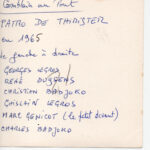 Comblain au Pont
PATRO DE
en 1965
de gauche à droite
GEORGES LEGROS
RENÉ
CHRISTIAN BADJOKO
GHISLAIN LEGROS
MARC GENICOT (le petit devant)
CHARLES BADJOKO